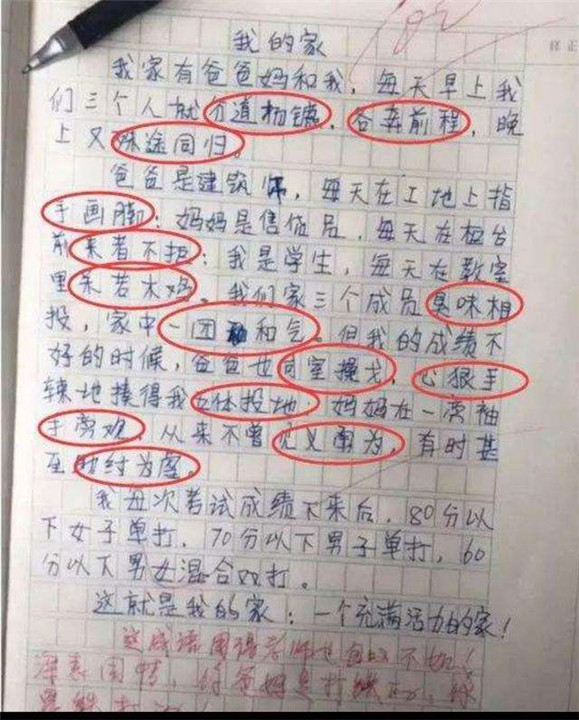 我的家
我家有爸爸妈和我，每天早上我
们三个人就分道扬镳，各奔前程，晚
上又殊途同归。
爸爸是建筑师，每天在工地上指
手画脚；妈妈是售货员，每天在柜台
前来者不拒；我是学生，每天在教室
里呆若木鸡。我们家三个成员臭味相
投，家中一团和气。但我的成绩不
好的时候，爸爸也同室操戈，心狠手
辣地揍得我五体投地，妈妈在一旁袖
手旁观，从来不曾见义勇为，有时甚
至助纣为虐。
我每次考试成绩下来后，80分以
下女子单打，70分以下男子单打，60
分以下男女混合双打。
这就是我的家：一个充满活力的家！
这成语用得老师也自叹不如！
深表同情，